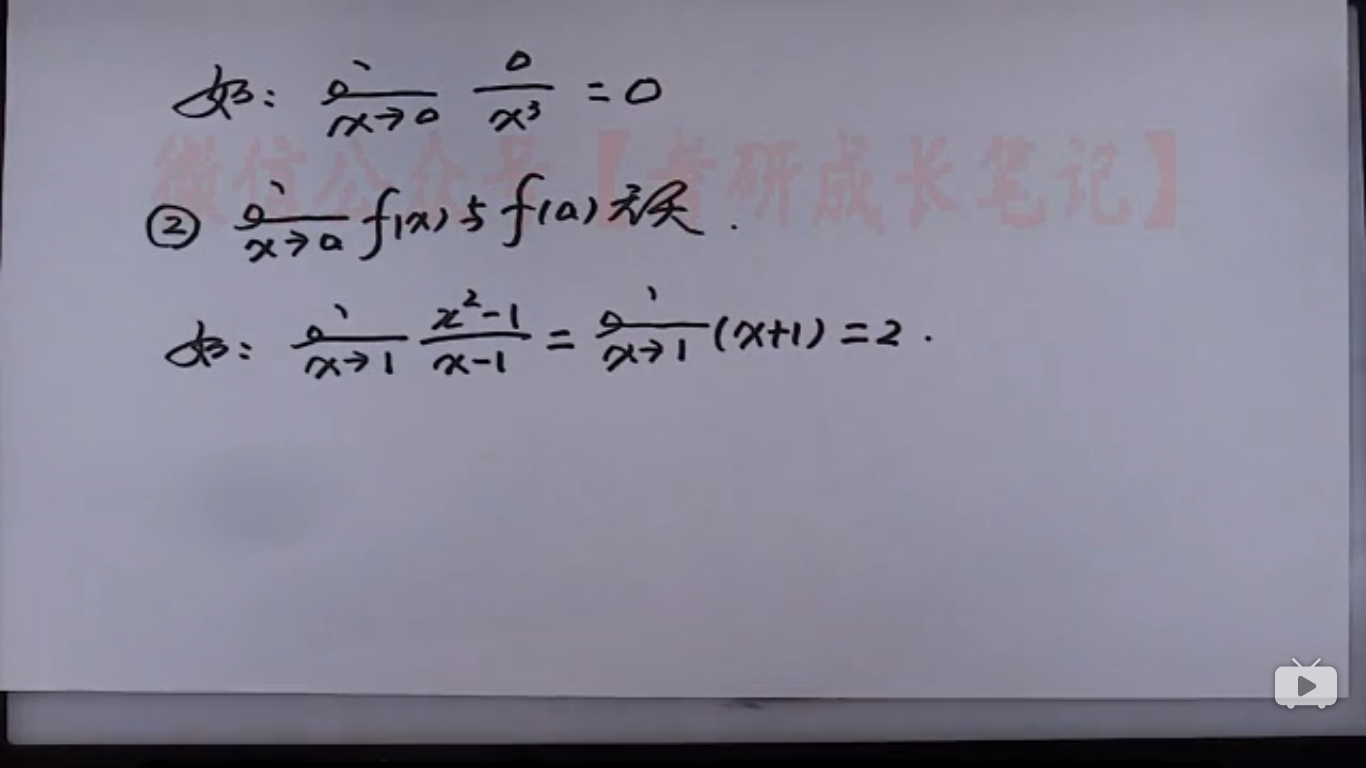 如: lim x→0 0/x³ = 0
微信公众号【考研成长笔记】
② lim x→a f(x) 与 f(a) 无关.
如: lim x→1 (x²-1)/(x-1) = lim x→1 (x+1) = 2.